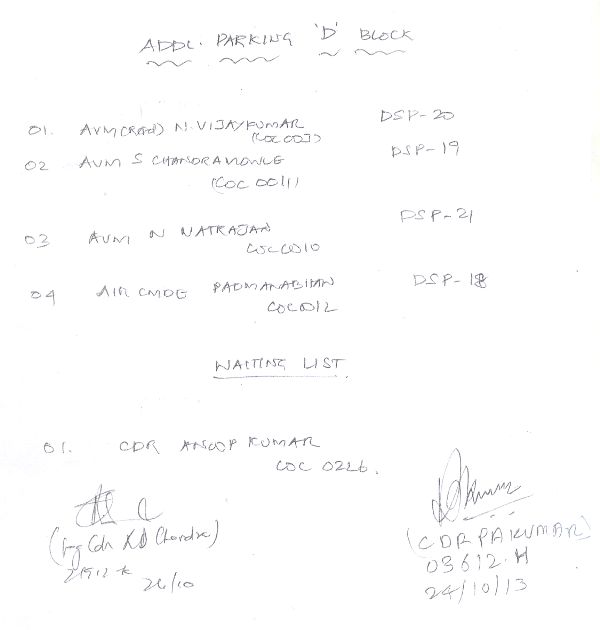 ADDL. PARKING 'D' BLOCK
01. AVM(Retd) N. VIJAYKUMAR DSP-20
(COC 0033)
02 AVM S CHANDRAMOWLE DSP-19
(COC 0011)
03 AVM N NATRAJAN DSP-21
COC 0010
04 AIR CMDE PADMANABHAN DSP-18
COC0012
WAITING LIST
01. CDR ANOOP KUMAR
COC 0226.
(Wg Cdr KD Chandra) (CDR PA KUMAR)
03612.H
24/10 24/10/13